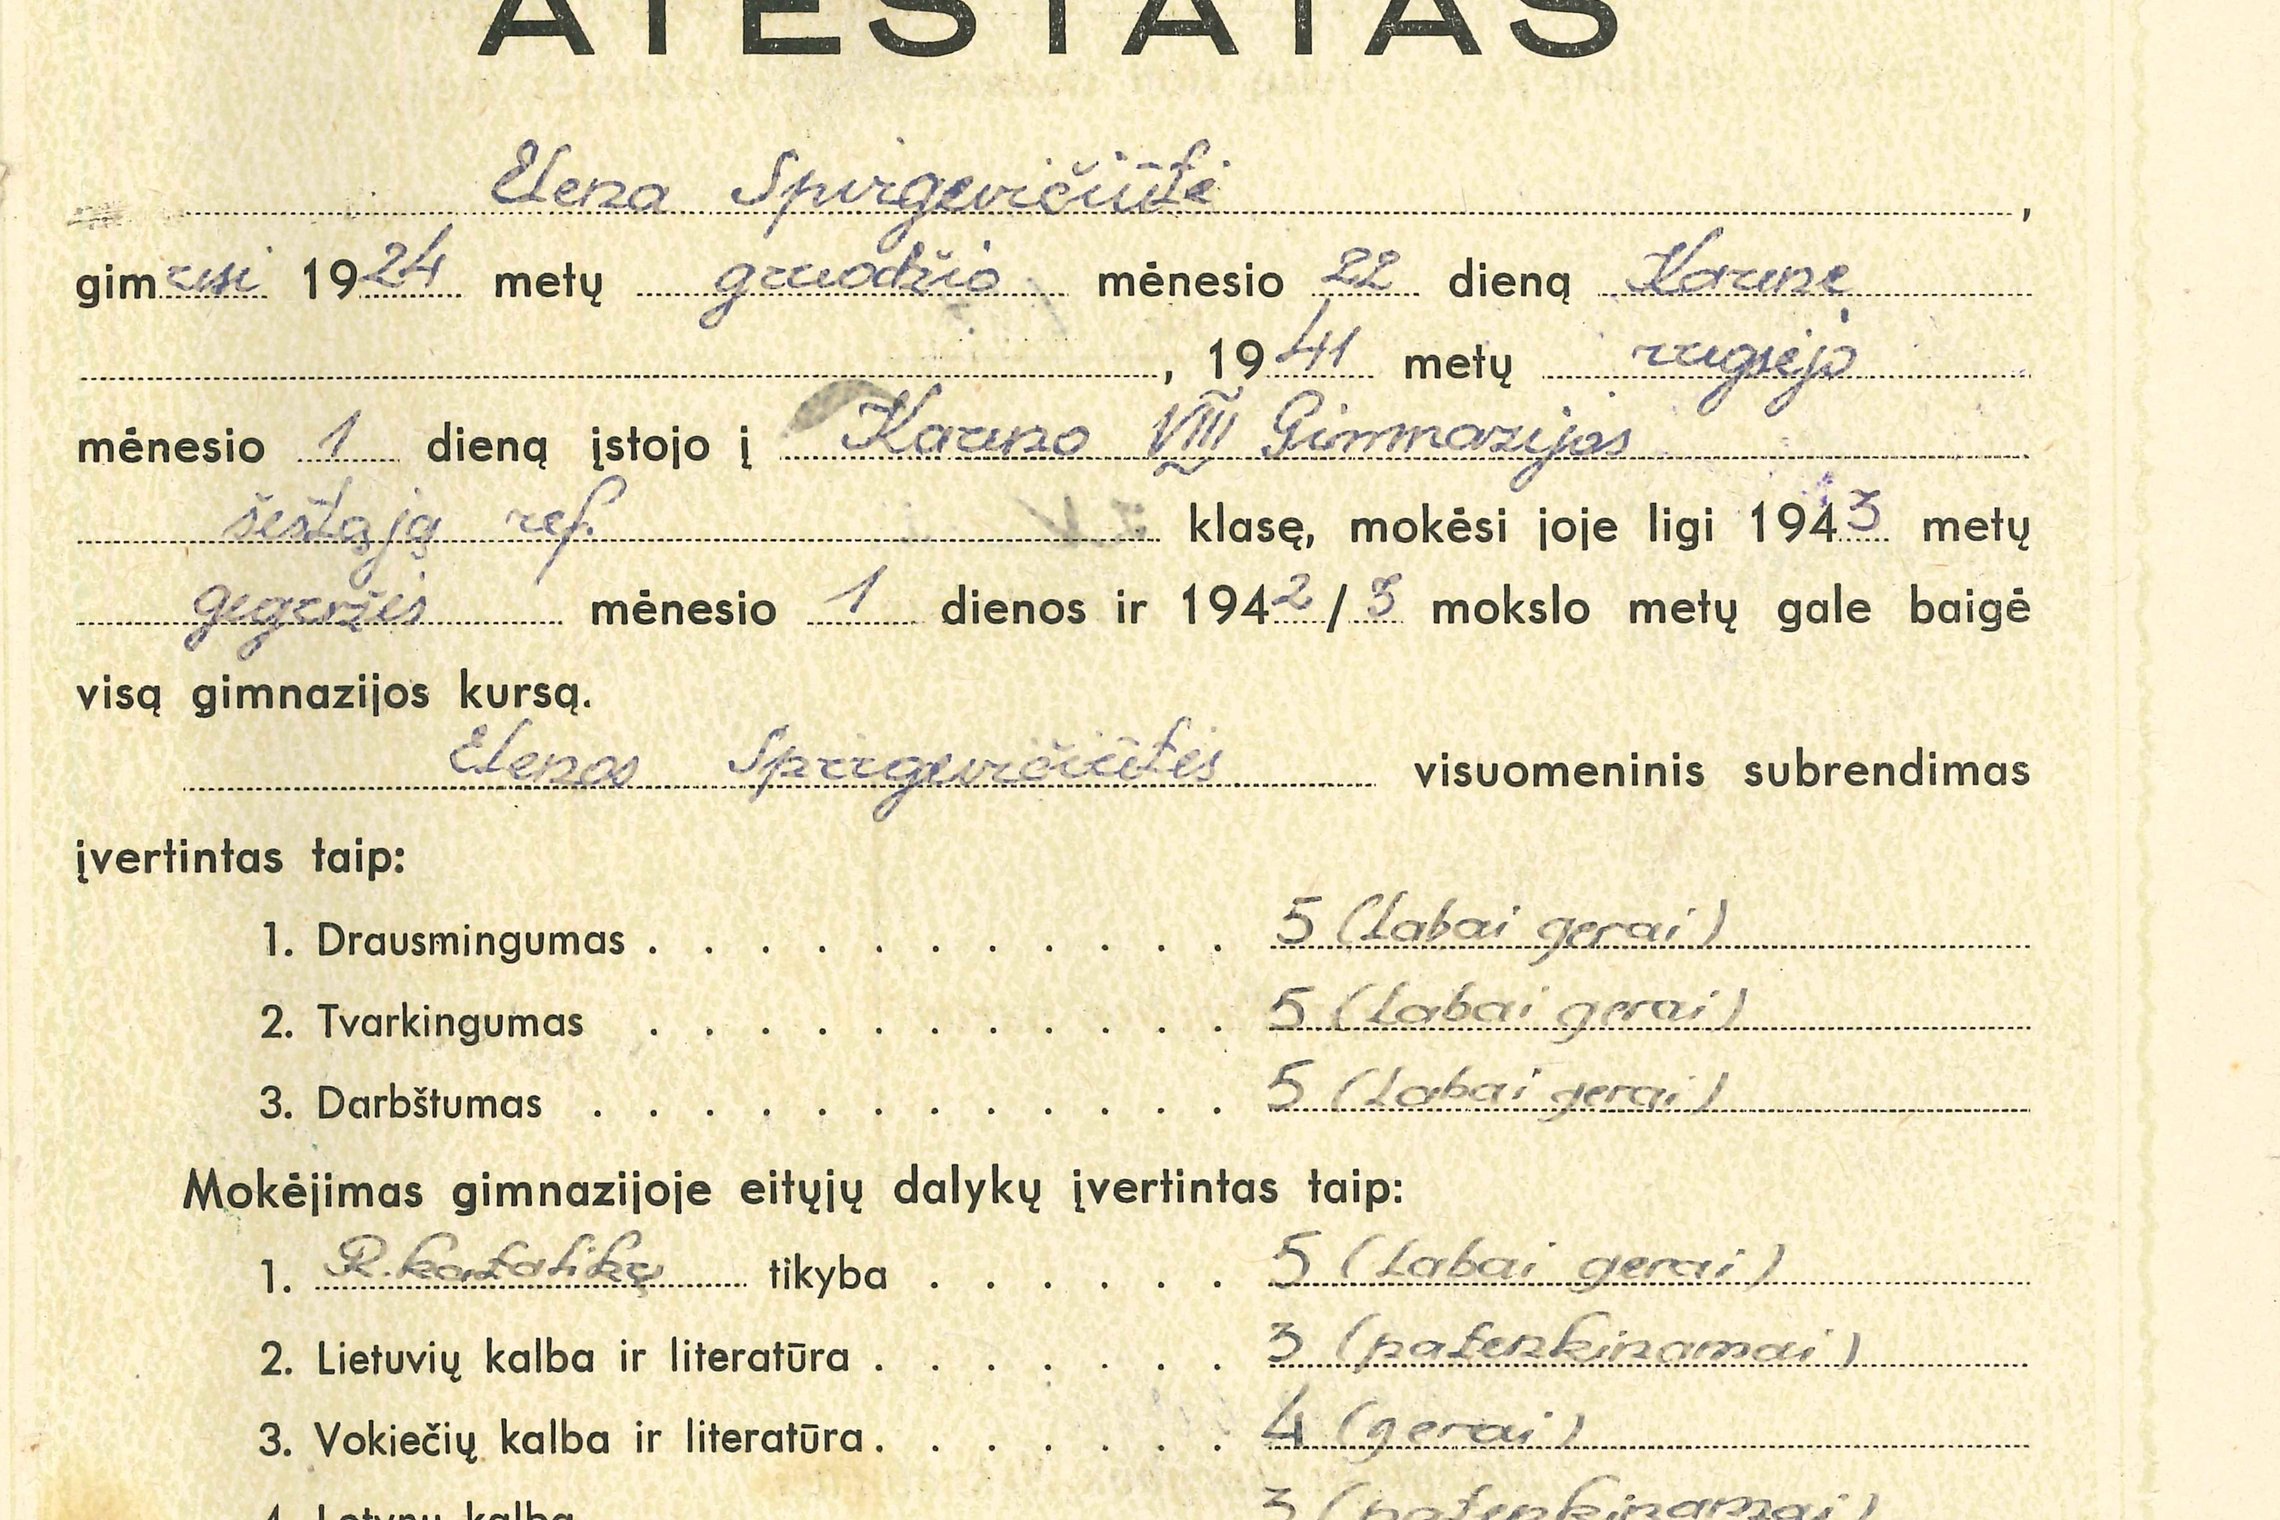 ATESTATAS
Elena Spirgevičiūtė,
gimusi 1924 metų gruodžio mėnesio 22 dieną Kaune
, 1941 metų rugsėjo
mėnesio 1 dieną įstojo į Kauno VIII Gimnazijos
šeštąją ref. klasę, mokėsi joje ligi 1943 metų
gegužės mėnesio 1 dienos ir 1942/3 mokslo metų gale baigė
visą gimnazijos kursą.
Elenos Spirgevičiūtės visuomeninis subrendimas
įvertintas taip:
1. Drausmingumas . . . . . . . . . . . 5 (labai gerai)
2. Tvarkingumas . . . . . . . . . . . 5 (labai gerai)
3. Darbštumas . . . . . . . . . . . . 5 (labai gerai)
Mokėjimas gimnazijoje eitųjų dalykų įvertintas taip:
1. R. katalikų tikyba . . . . . . 5 (labai gerai)
2. Lietuvių kalba ir literatūra . . . . . . . 3 (patenkinamai)
3. Vokiečių kalba ir literatūra . . . . . . . 4 (gerai)
4. Lotynų kalba 3 (patenkinamai)